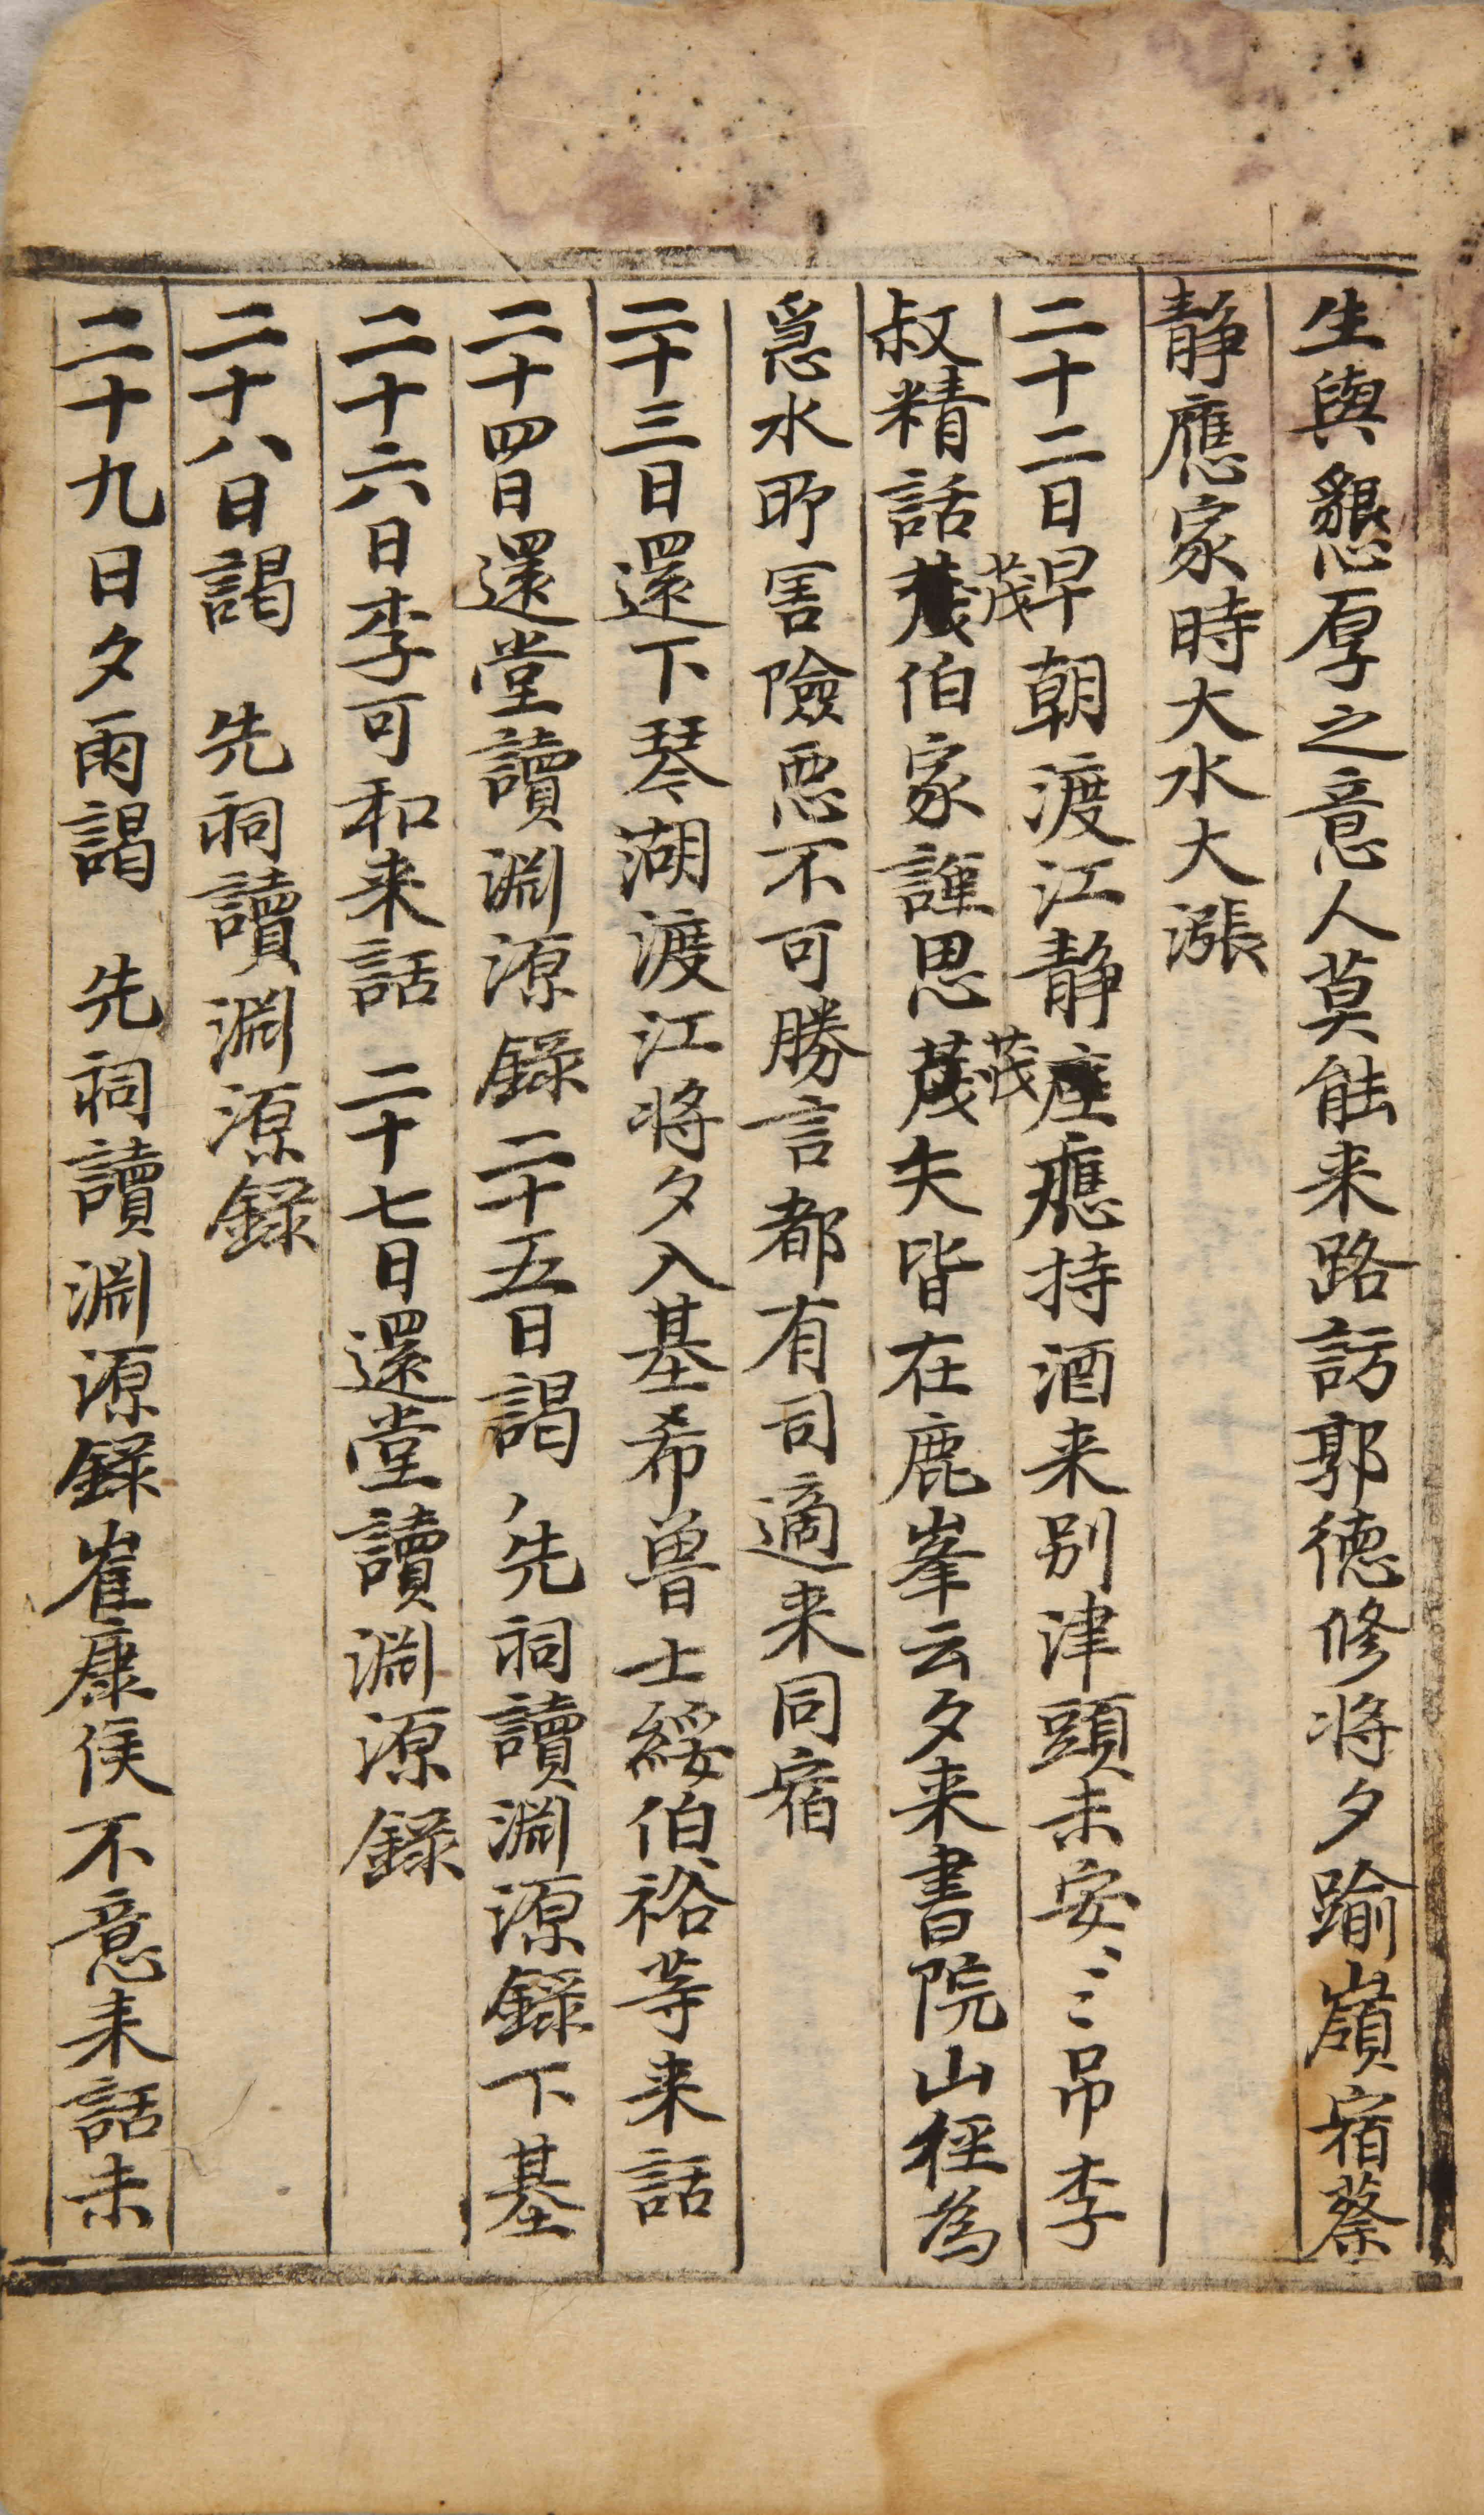 生與懇厚之意人莫能来路訪郭德修将夕踰嶺宿蔡
静應家時大水大漲
二十二日早朝渡江静應持酒来別津頭未安〻〻吊李
叔精話茂伯家謹思茂夫皆在鹿峯云夕来書院山徑為
急水所害險惡不可勝言都有司適来同宿
二十三日還下琴湖渡江将夕入基希曽士綏伯裕等来話
二十四日還堂讀淵源錄二十五日謁先祠讀淵源錄下基
二十六日李可和来話 二十七日還堂讀淵源錄
二十八日謁 先祠讀淵源錄
二十九日夕雨謁 先祠讀淵源錄崔康侯不意来話未